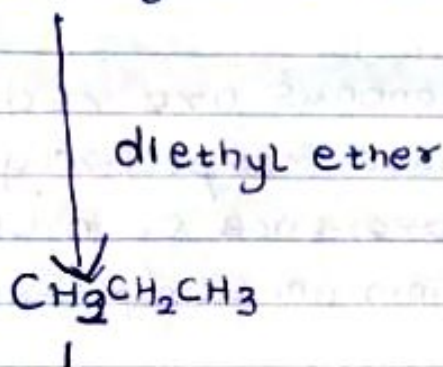 diethyl ether
CH₂CH₂CH₃